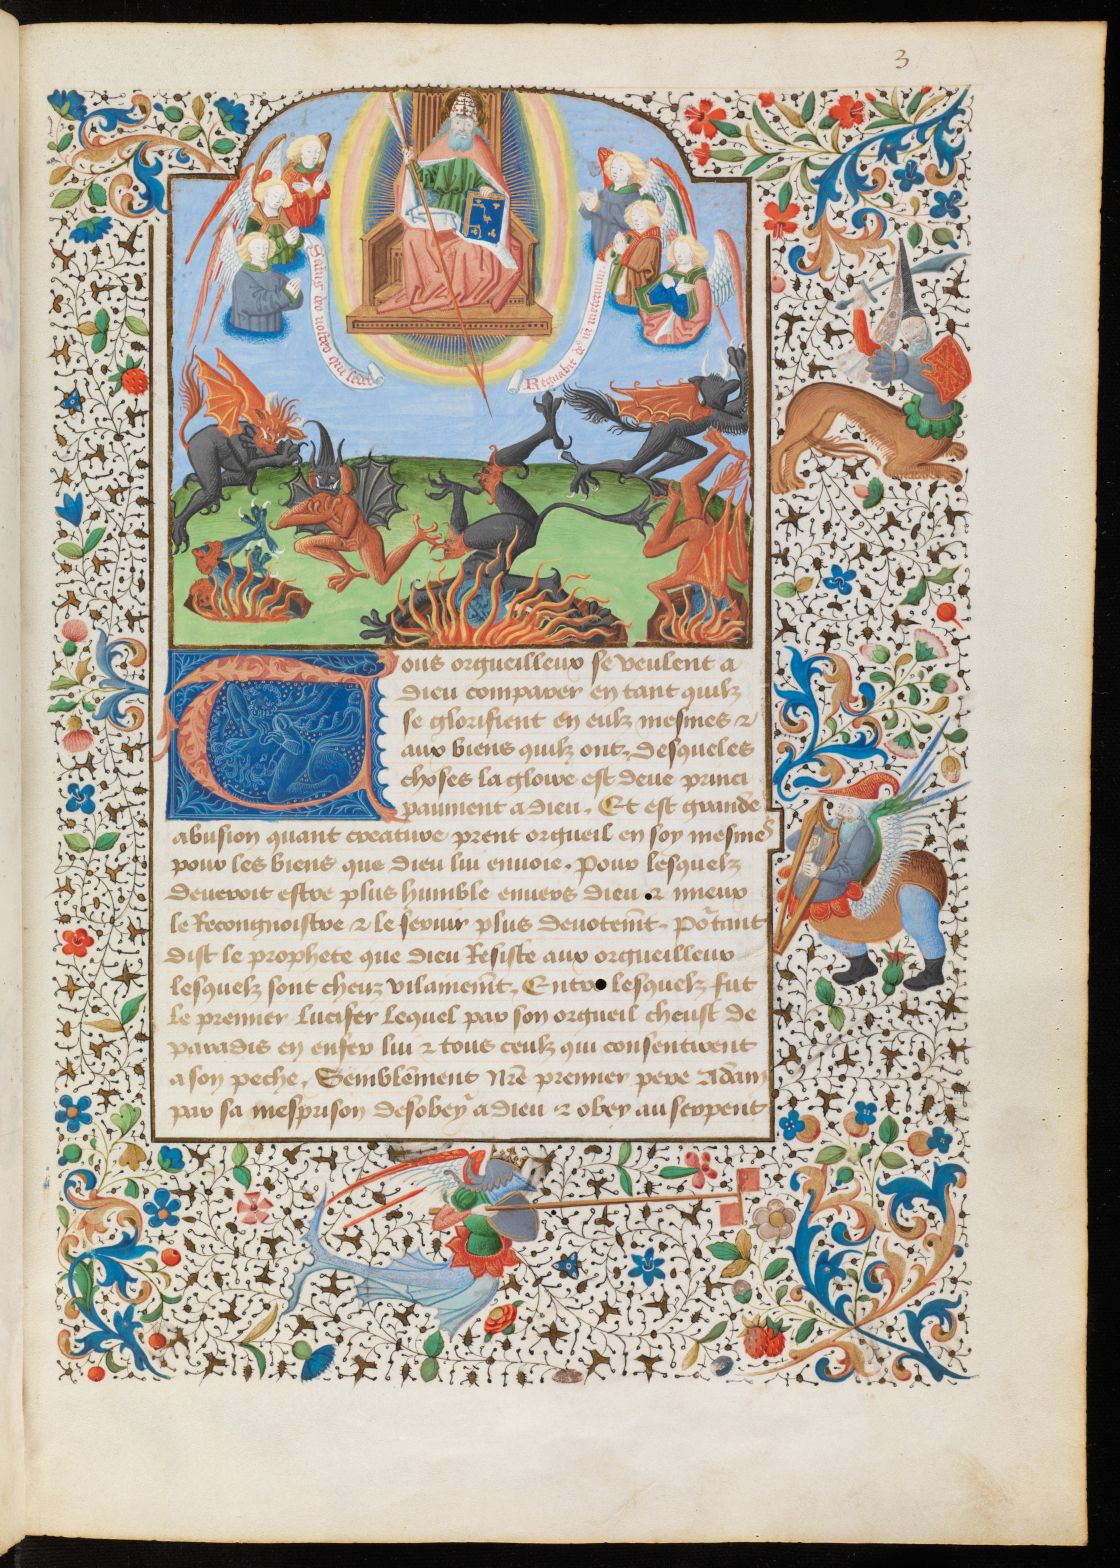 3
Tous orgueilleux se veulent a
dieu comparer en tant qulz
se glorifient en eulz mesmes ⁊
aux biens quilz ont, desqueles
choses la gloire est deue princi
paument a dieu. Et est grande
abusion quant creature prent orgueil en soy mesmes
pour les biens que dieu lui envoie. Pour lesquelz
deveroit estre plus humble envers dieu ⁊ mieux
le Recongnoistre ⁊ le servir plus devotem̄t. Po͛tant
dist le prophete que dieu Resiste aux orgueilleux
lesquelz sont cheuz vilainem̄t. Entre lesquelz fut
le premier lucifer lequel par son orgueil cheust de
paradis en enfer lui ⁊ tous ceulz qui consentirent
a son peche. Semblēment nr̄e premier pere Adam
par sa mesprison desobey a dieu ⁊ obey au serpent